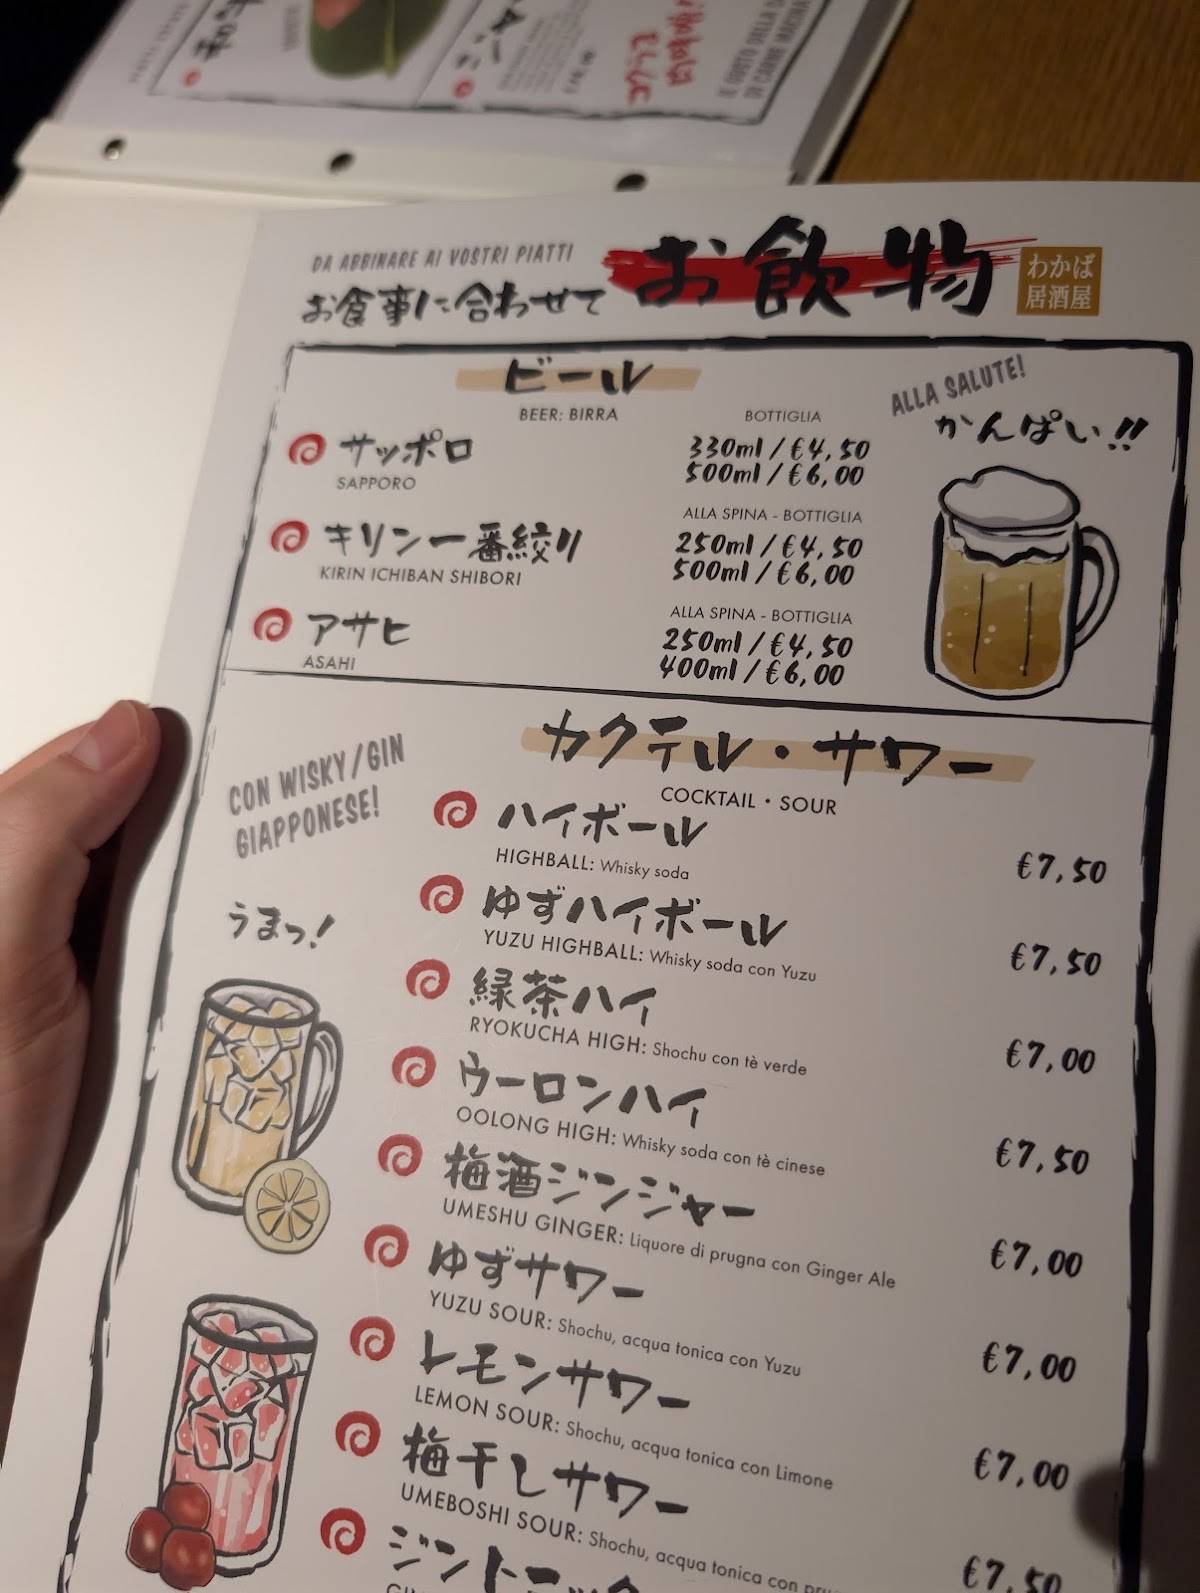 IL GUSTO DELLA
DI CARNE MACINA
DA ABBINARE AI VOSTRI PIATTI
お食事に合わせて
お飲物
わかば
居酒屋
ビール
BEER: BIRRA
ALLA SALUTE!
かんぱい!!
サッポロ
SAPPORO
BOTTIGLIA
330ml / €4,50
500ml / €6,00
キリン一番絞り
KIRIN ICHIBAN SHIBORI
ALLA SPINA - BOTTIGLIA
250ml / €4,50
500ml / €6,00
アサヒ
ASAHI
ALLA SPINA - BOTTIGLIA
250ml / €4,50
400ml / €6,00
カクテル・サワー
COCKTAIL・SOUR
CON WISKY/GIN
GIAPPONESE!
うまっ!
ハイボール
HIGHBALL: Whisky soda
€7,50
ゆずハイボール
YUZU HIGHBALL: Whisky soda con Yuzu
€7,50
緑茶ハイ
RYOKUCHA HIGH: Shochu con tè verde
€7,00
ウーロンハイ
OOLONG HIGH: Whisky soda con tè cinese
€7,50
梅酒ジンジャー
UMESHU GINGER: Liquore di prugna con Ginger Ale
€7,00
ゆずサワー
YUZU SOUR: Shochu, acqua tonica con Yuzu
€7,00
レモンサワー
LEMON SOUR: Shochu, acqua tonica con Limone
€7,00
梅干しサワー
UMEBOSHI SOUR: Shochu, acqua tonica con
€7,50
ジントニック